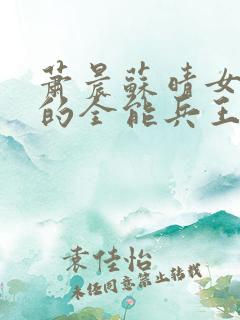 萧晨蘇晴女
的全能兵王
袁佳怡
未经同意禁止转载